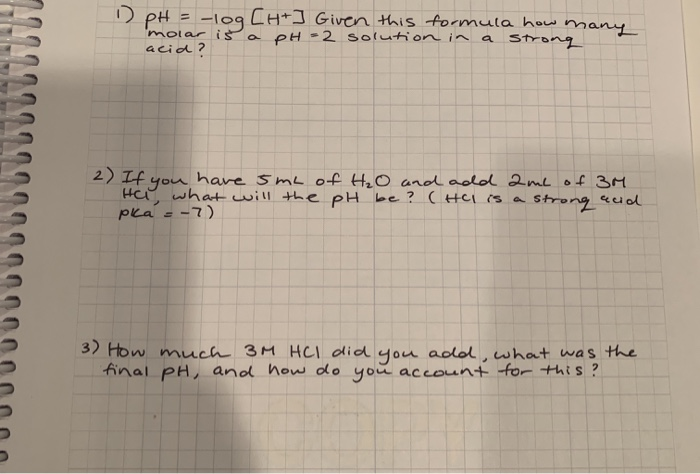 1) pH = -log [H+] Given this formula how many
molar is a pH = 2 solution in a strong
acid?
2) If you have 5mL of H₂O and add 2mL of 3M
HCl, what will the pH be? (HCl is a strong acid
pka = -7)
3) How much 3M HCl did you add, what was the
final pH, and how do you account for this?